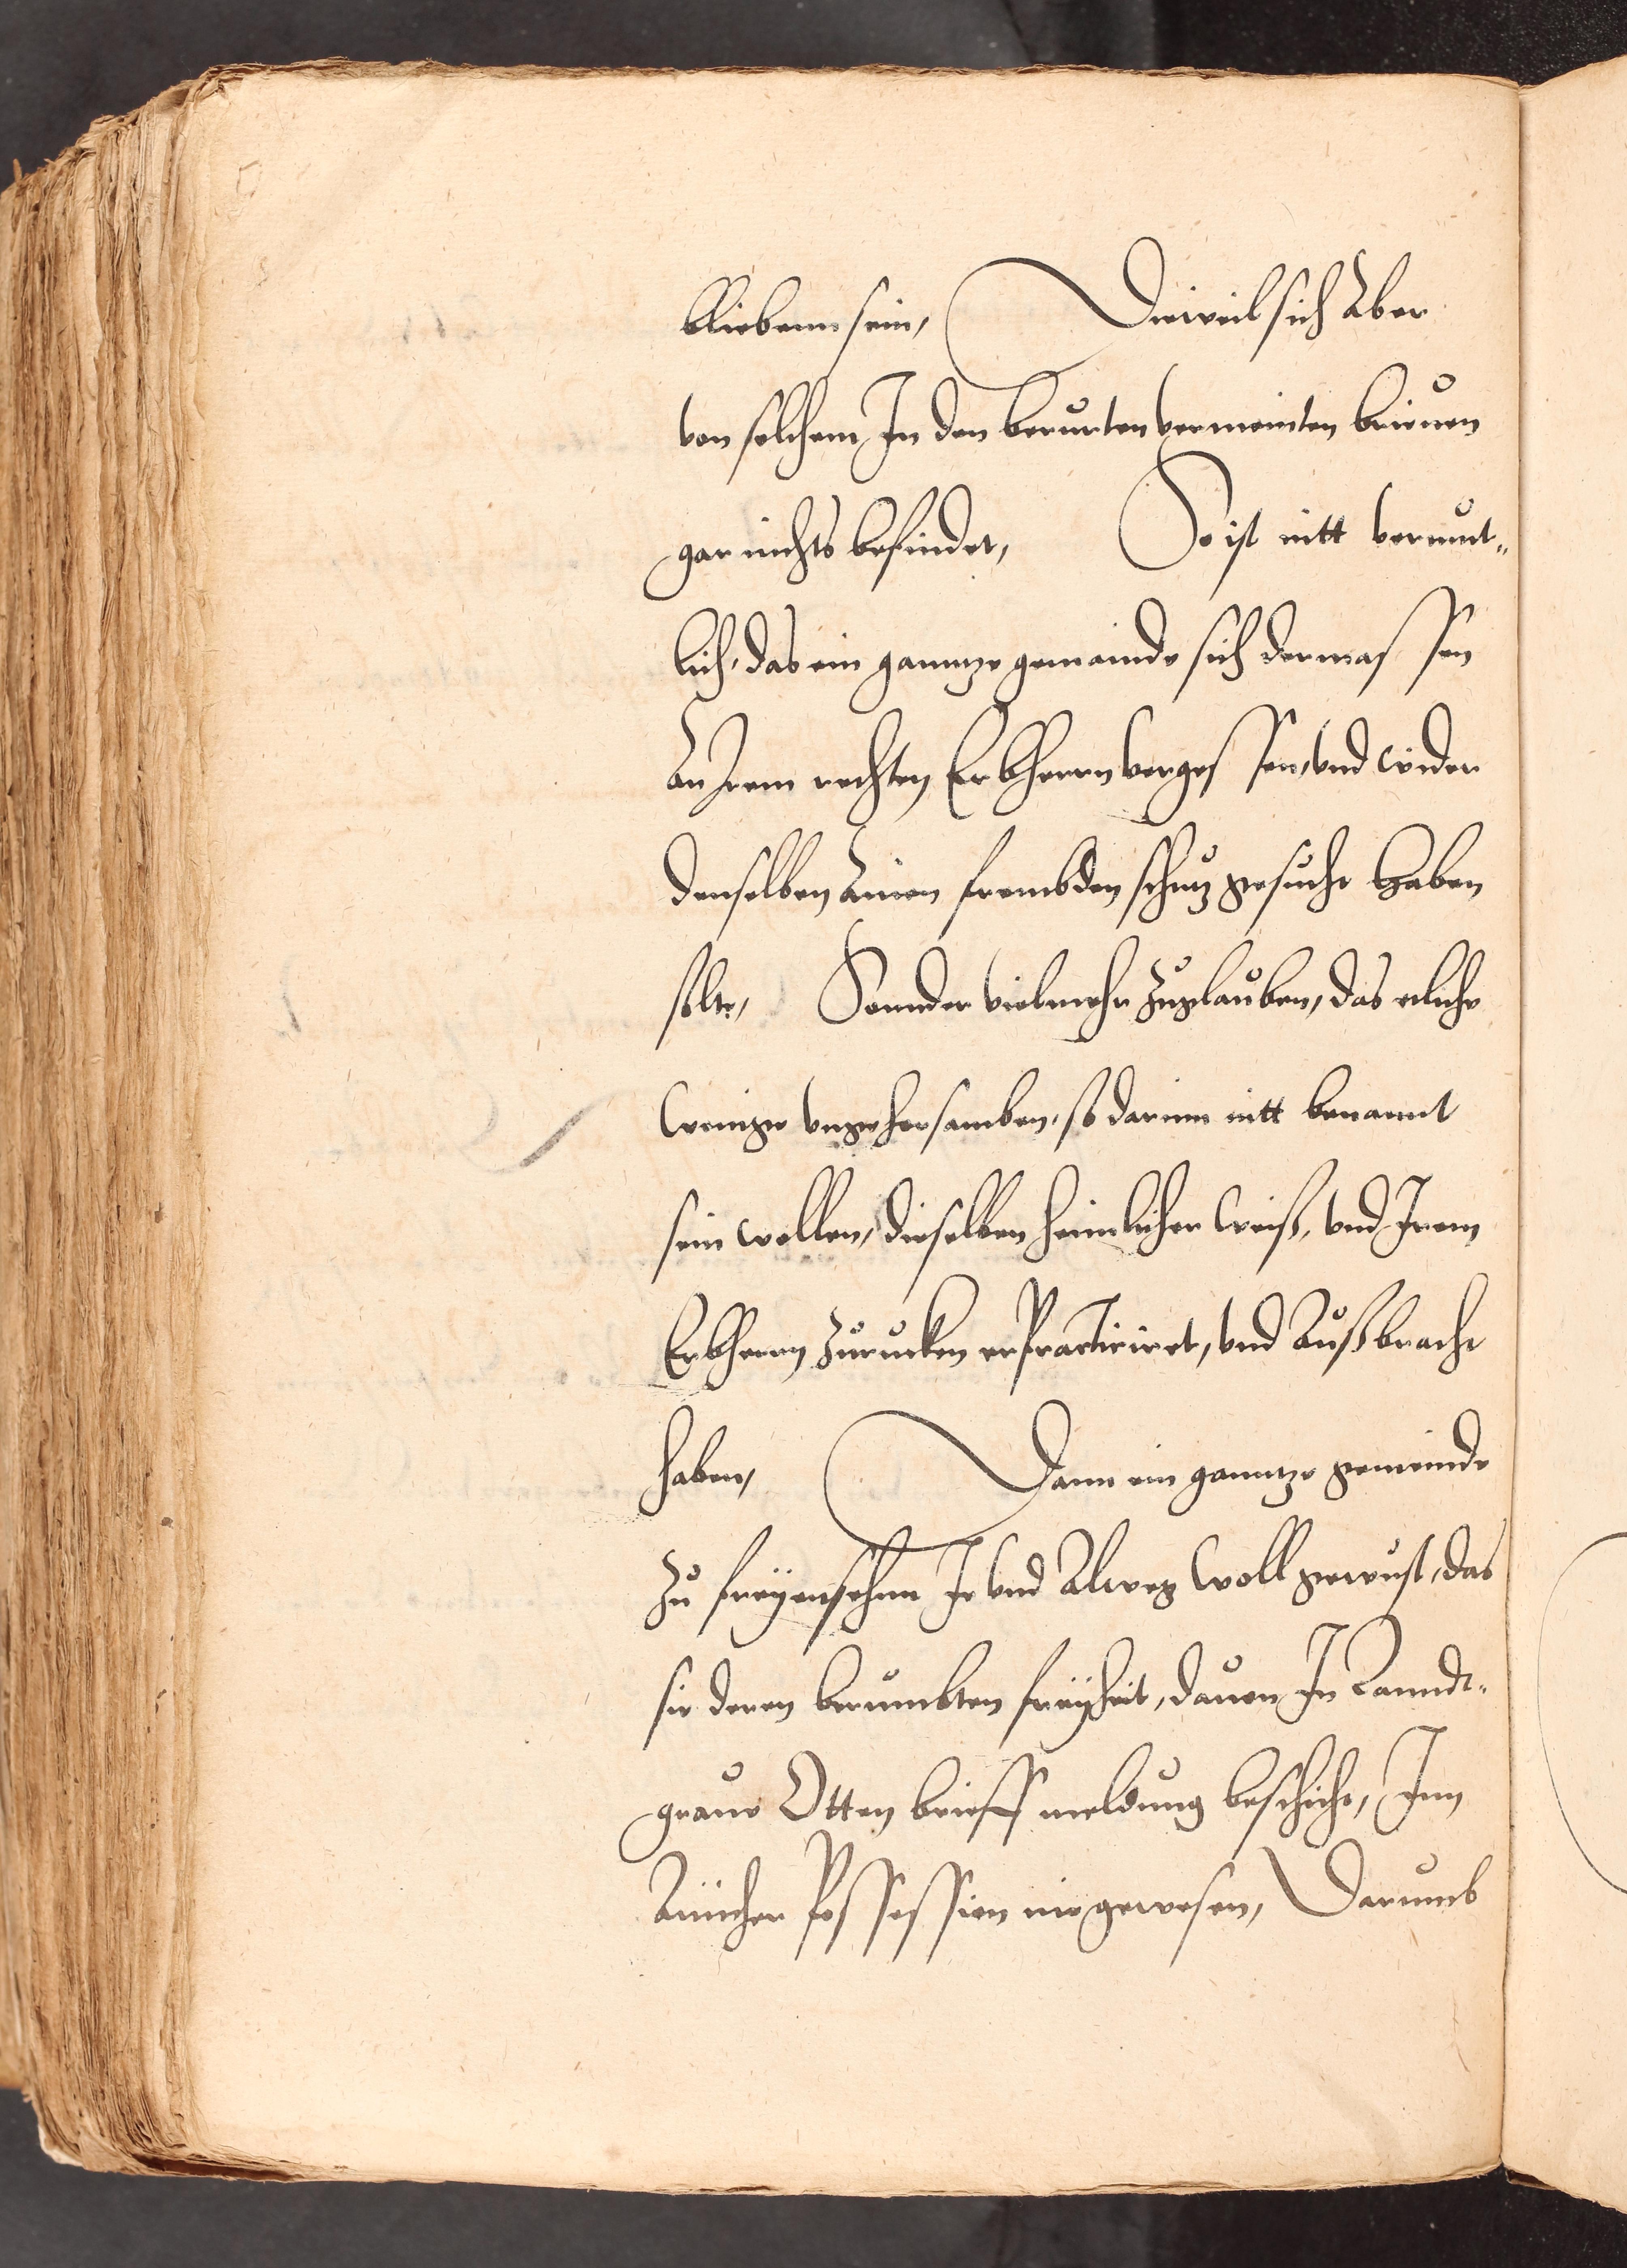 bliebenn sein, Dieweil sich Aber
von solchem In den berurten vermeinten brieuen
gar nichts befindet, So ist nitt vermut„
lich, das ein ganntze gemeinde sich dermassen
An Irem rechten Erbherrn vergessen, vnd wider
denselben Ainen frembden schutz gesucht haben
solte, Sonnder vielmehr zuglauben, das etliche
wenige vngehorsamben, so darinn nitt benannt
sein wollen, dieselben heimlicher weiß, vnd Irem
Erbherrn zurucken erpracticiret, vnd Außbracht
haben, Dann ein ganntze gemeinde
zu freyensehnn Je vnd Alweg woll gewust, das
sie deren berumbten freyheit, dauon In Lanndt-
graue Otten brieff meldung beschicht, Inn
Ainicher Possession nie gewesen, Darumb